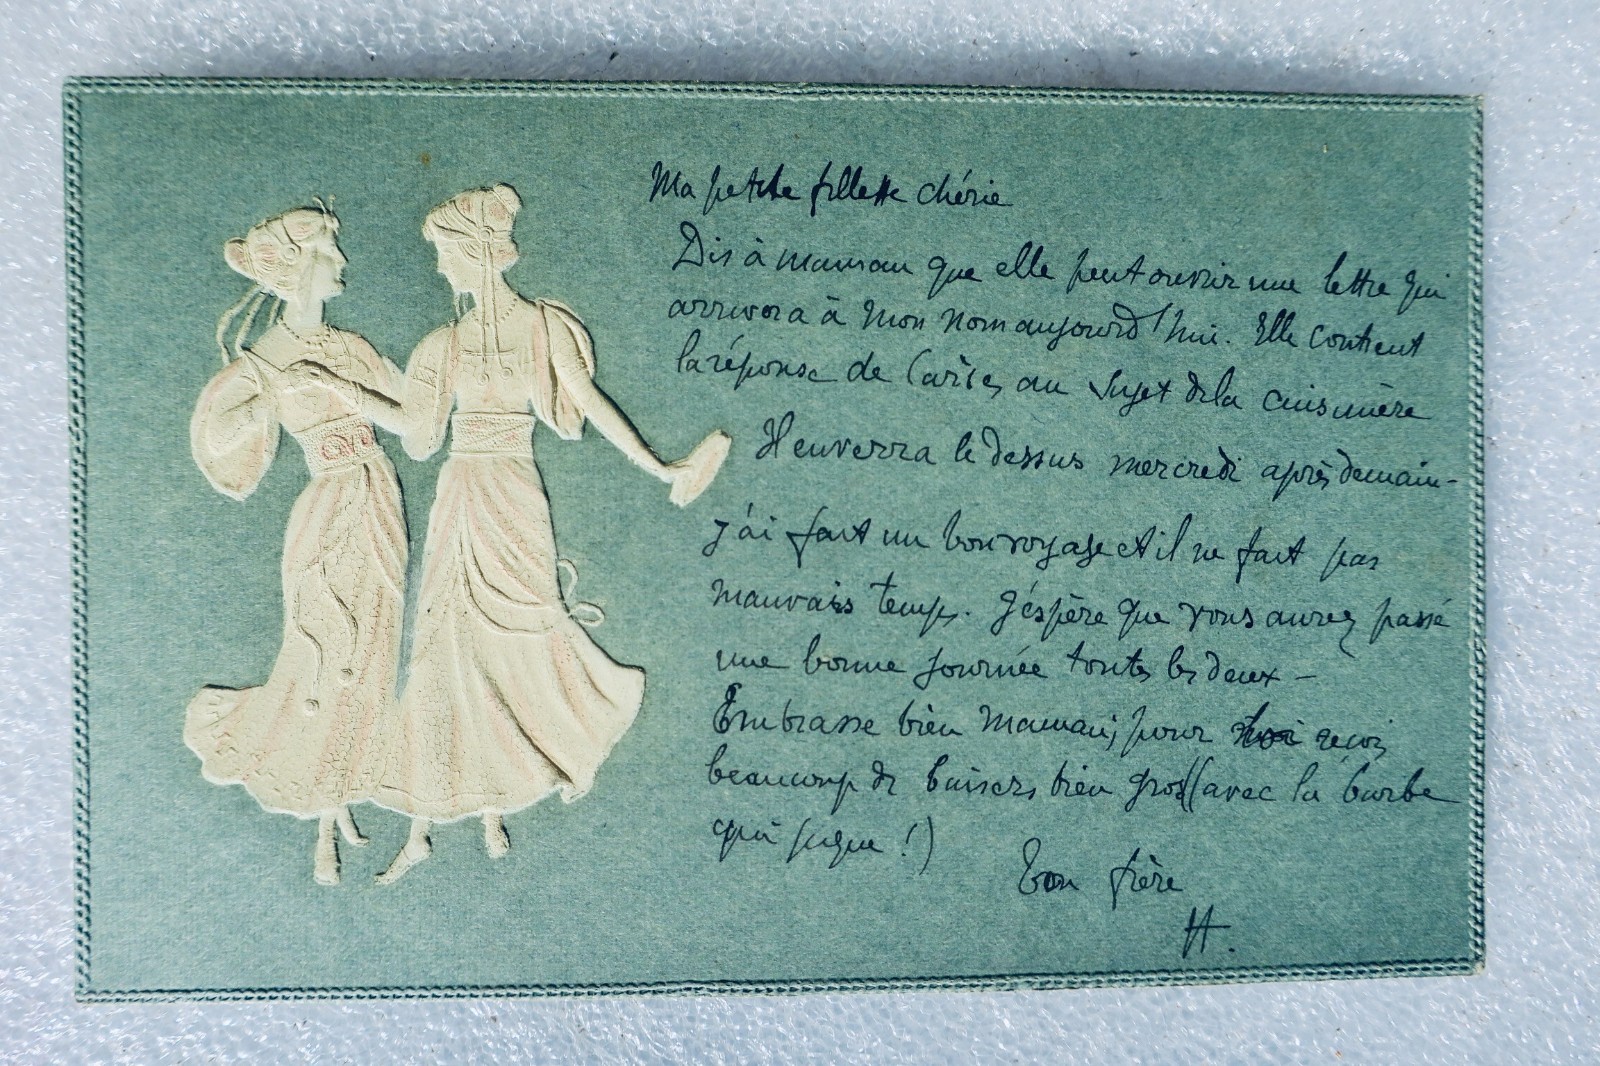 Ma petite fillette chérie
Dis à maman que elle peut ouvrir une lettre qui
arrivera à mon nom aujourd'hui. Elle contient
la réponse de au sujet de la cuisinière
verra le dessus mercredi après demain -
J'ai fait un bon voyage et il ne fait pas
mauvais temps. J'espère que vous aurez passé
une bonne journée toutes les deux -
Embrasse bien Maman, pour toi reçois
beaucoup de baisers bien gros (avec la barbe
qui pique !)
Ton frère
H.